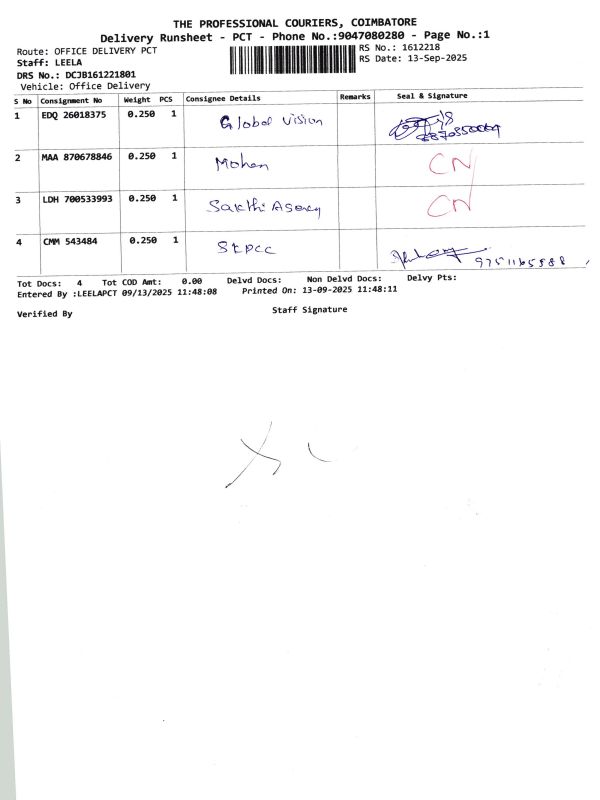 THE PROFESSIONAL COURIERS, COIMBATORE
Delivery Runsheet - PCT - Phone No.:9047080280 - Page No.:1
Route: OFFICE DELIVERY PCT RS No.: 1612218
Staff: LEELA RS Date: 13-Sep-2025
DRS No.: DCJB161221801
Vehicle: Office Delivery
S No Consignment No Weight PCS Consignee Details Remarks Seal & Signature
1 EDQ 26018375 0.250 1 Global Vision
2 MAA 870678846 0.250 1 Mohan CN
3 LDH 700533993 0.250 1 Sakthi CN
4 CMM 543484 0.250 1
Tot Docs: 4 Tot COD Amt: 0.00 Delvd Docs: Non Delvd Docs: Delvy Pts:
Entered By :LEELAPCT 09/13/2025 11:48:08 Printed On: 13-09-2025 11:48:11
Verified By Staff Signature